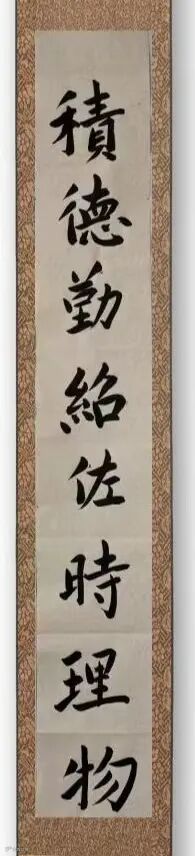 積德勤紹佐時理物